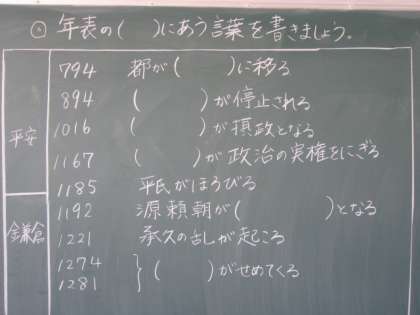 ◎ 年表の(　　)にあう言葉を書きましょう。
平安
794 都が(　　)に移る
894 (　　)が停止される
1016 (　　)が摂政となる
1167 (　　)が政治の実権をにぎる
1185 平氏がほろびる
鎌倉
1192 源頼朝が(　　)となる
1221 承久の乱が起こる
1274
1281 } (　　)がせめてくる